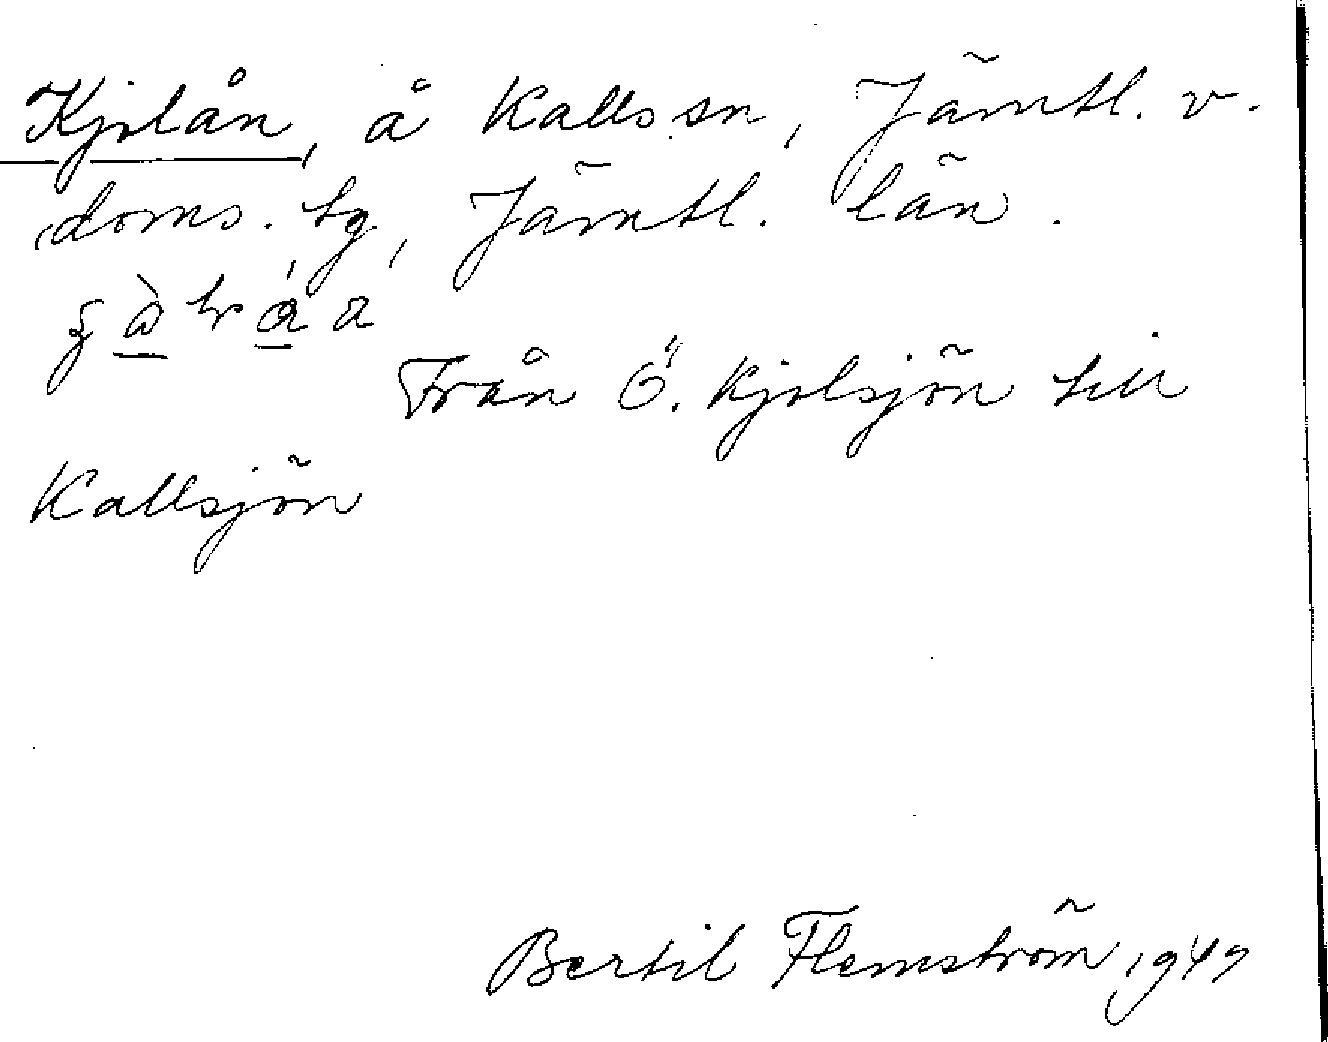 Kjolån, å Kalls sn, Jämtl. v.
doms. tg, Jämtl. län.
Från Ö. Kjolsjön till
Kallsjön
Bertil Flemström, 1949